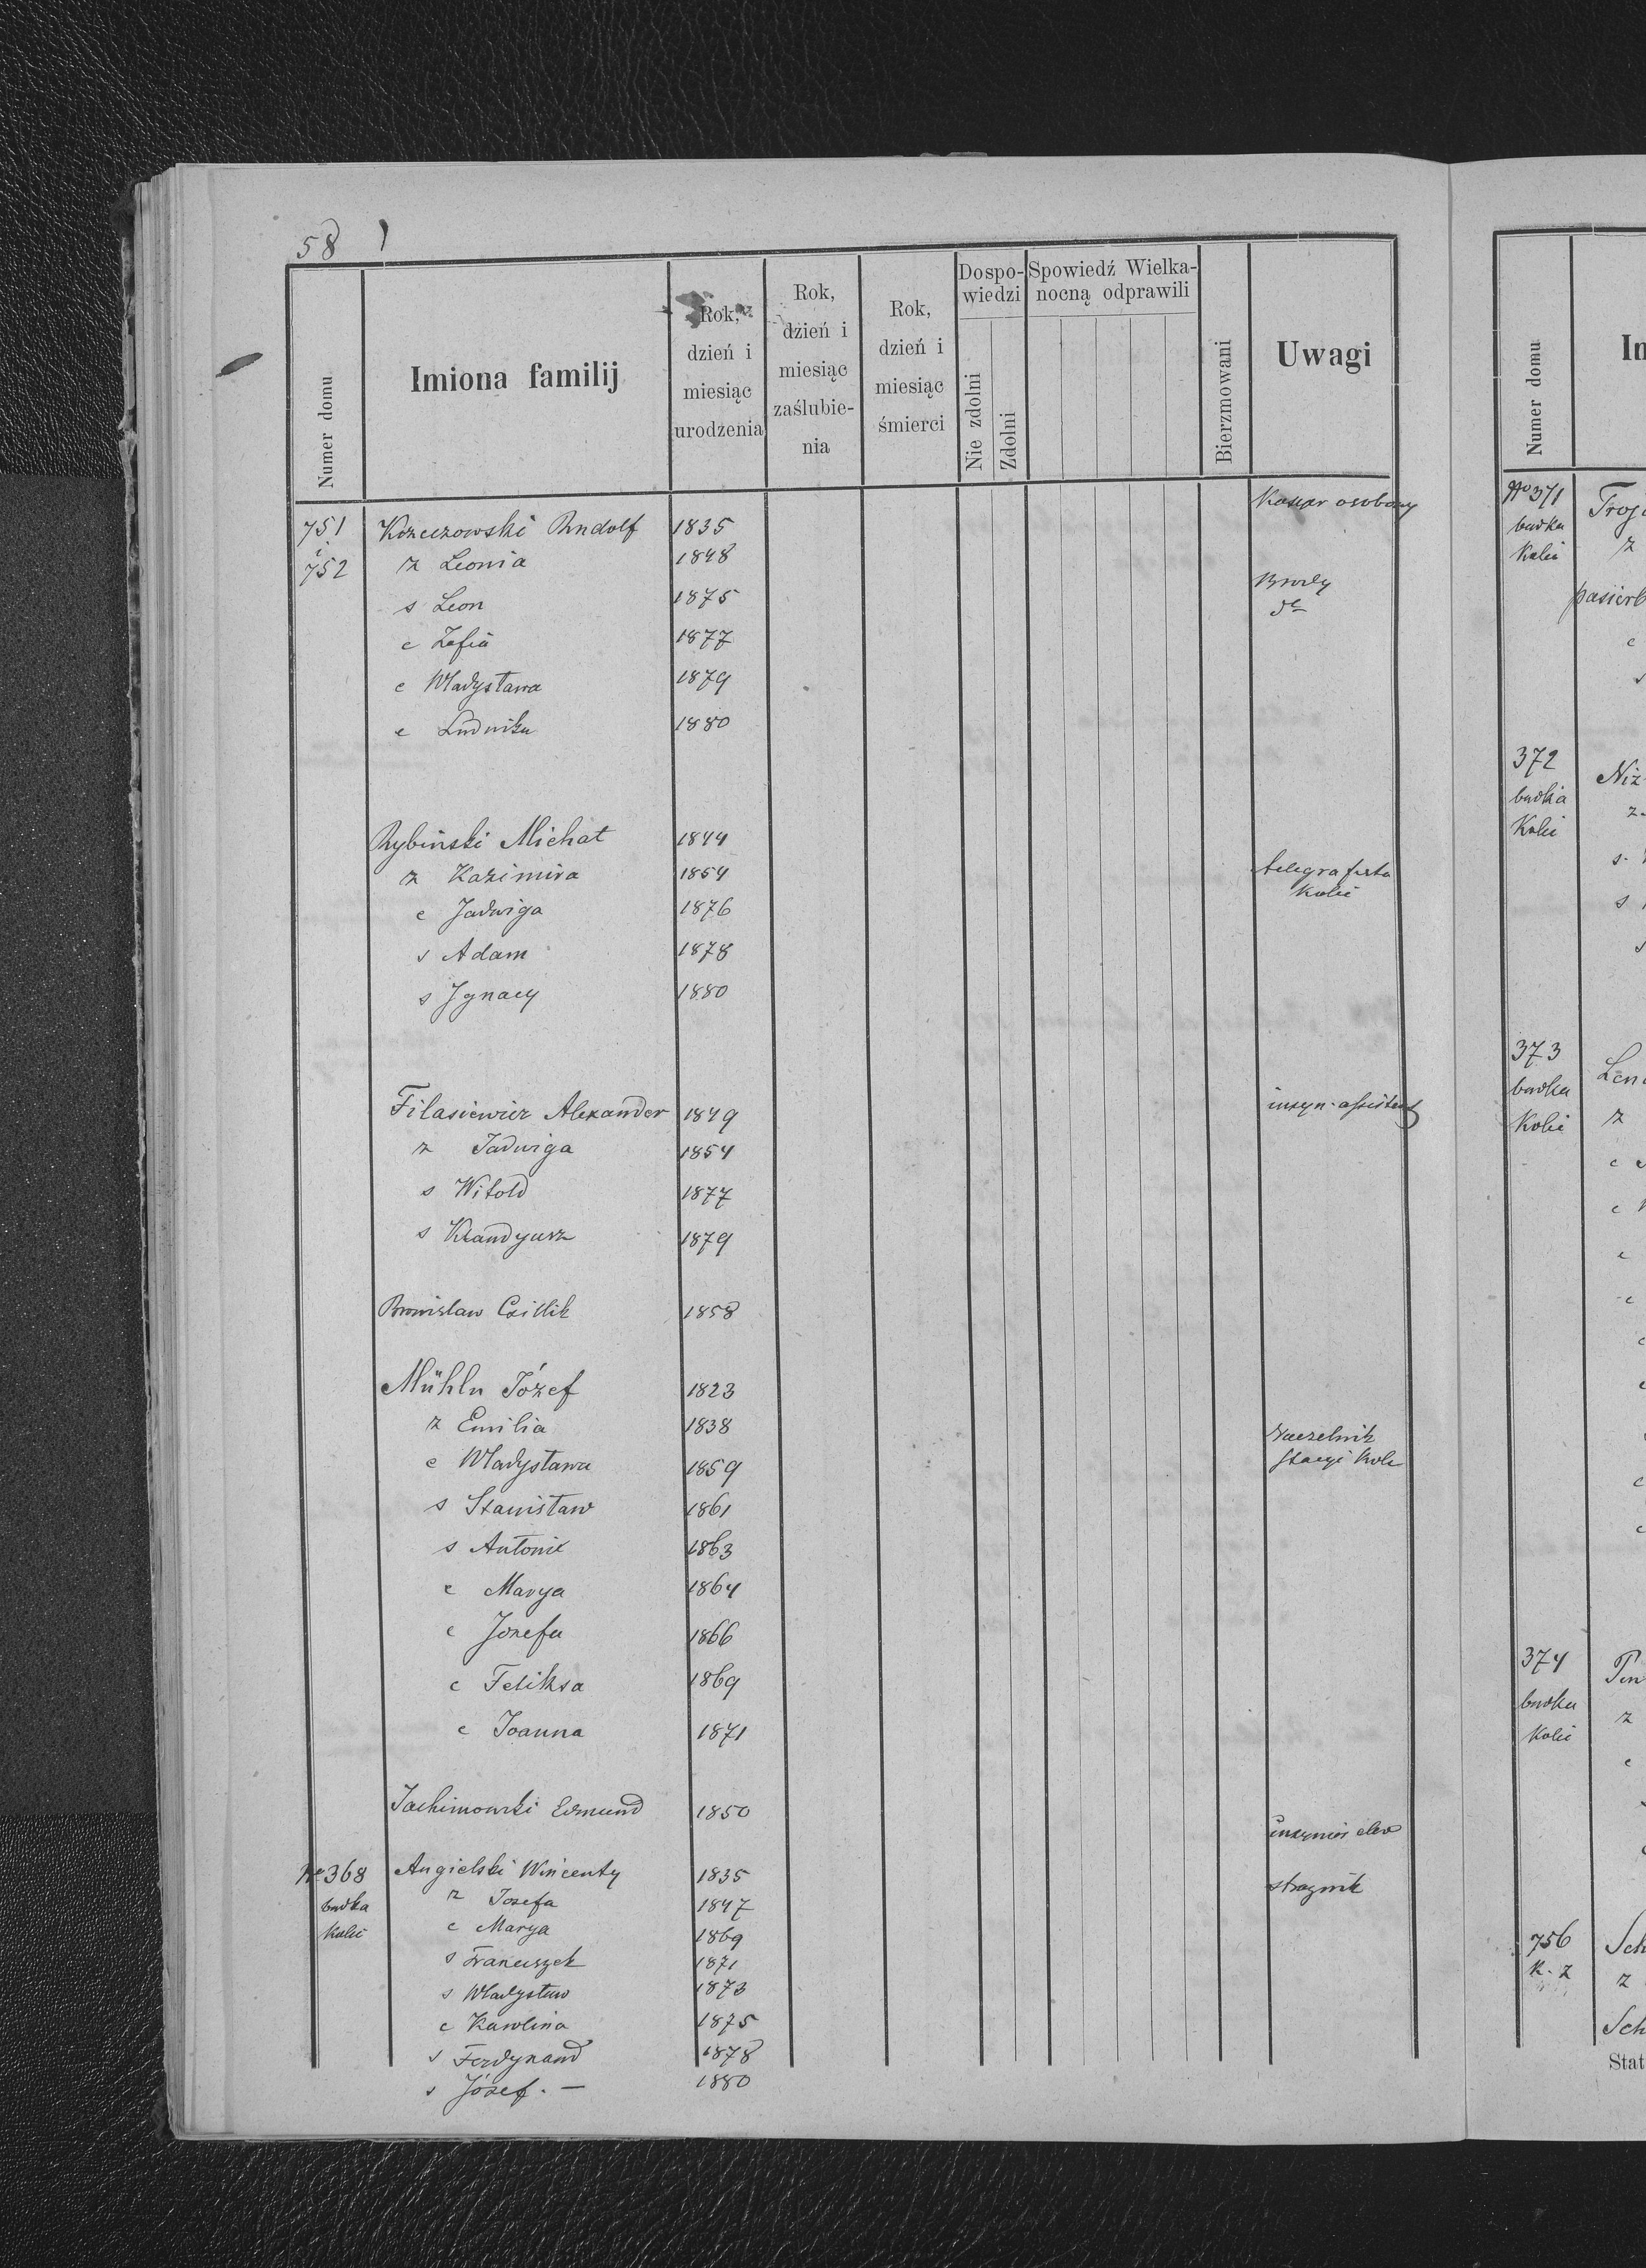 58
Numer domu
Imiona familij
Rok, dzień i miesiąc urodzenia
Rok, dzień i miesiąc zaślubie-nia
Rok, dzień i miesiąc śmierci
Dospo-wiedzi
Nie zdolni
Zdolni
Spowiedź Wielka-nocną odprawili
Bierzmowani
Uwagi
Kasyer osobowy
751 Rudolf 1835
i
752 z Leonia 1848
Brody
s Leon 1875 dto
c Zofia 1877
c Władysława 1879
c Ludwika 1880
Rybiński Michał 1844
z Kazimira 1854 telegrafista
kolei
c Jadwiga 1876
s Adam 1878
s Jgnacy 1880
Filasiewicz Alexander 1849 inżyn. assistent
z Jadwiga 1854
s Witold 1877
s Klaudyusz 1879
Bronisław 1858
Józef 1823
z Emilia 1838 Naczelnik
c Władysława 1859 stacyi kole
s Stanisław 1861
s Antoni 1863
c Marya 1864
c Jozefa 1866
c Feliksa 1869
c Joanna 1871
Jachimowski Edmund 1850
inżynier elev
No 368 Angielski Wincenty 1835 strażnik
budka z Jozefa 1847
Kolei c Marya 1869
s Franciszek 1871
s Władysław 1873
c Karolina 1875
s Ferdynand 1878
s Józef. — 1880
Numer domu
Im
No 371
budka
Kolei z
pasierb
c
372 Niż
budka z
Kolei
s.
s
373 Len
budka
Kolei z
c
c
c
374
budka z
Kolei
c
756 Sch
K. z z
Sch
Stat